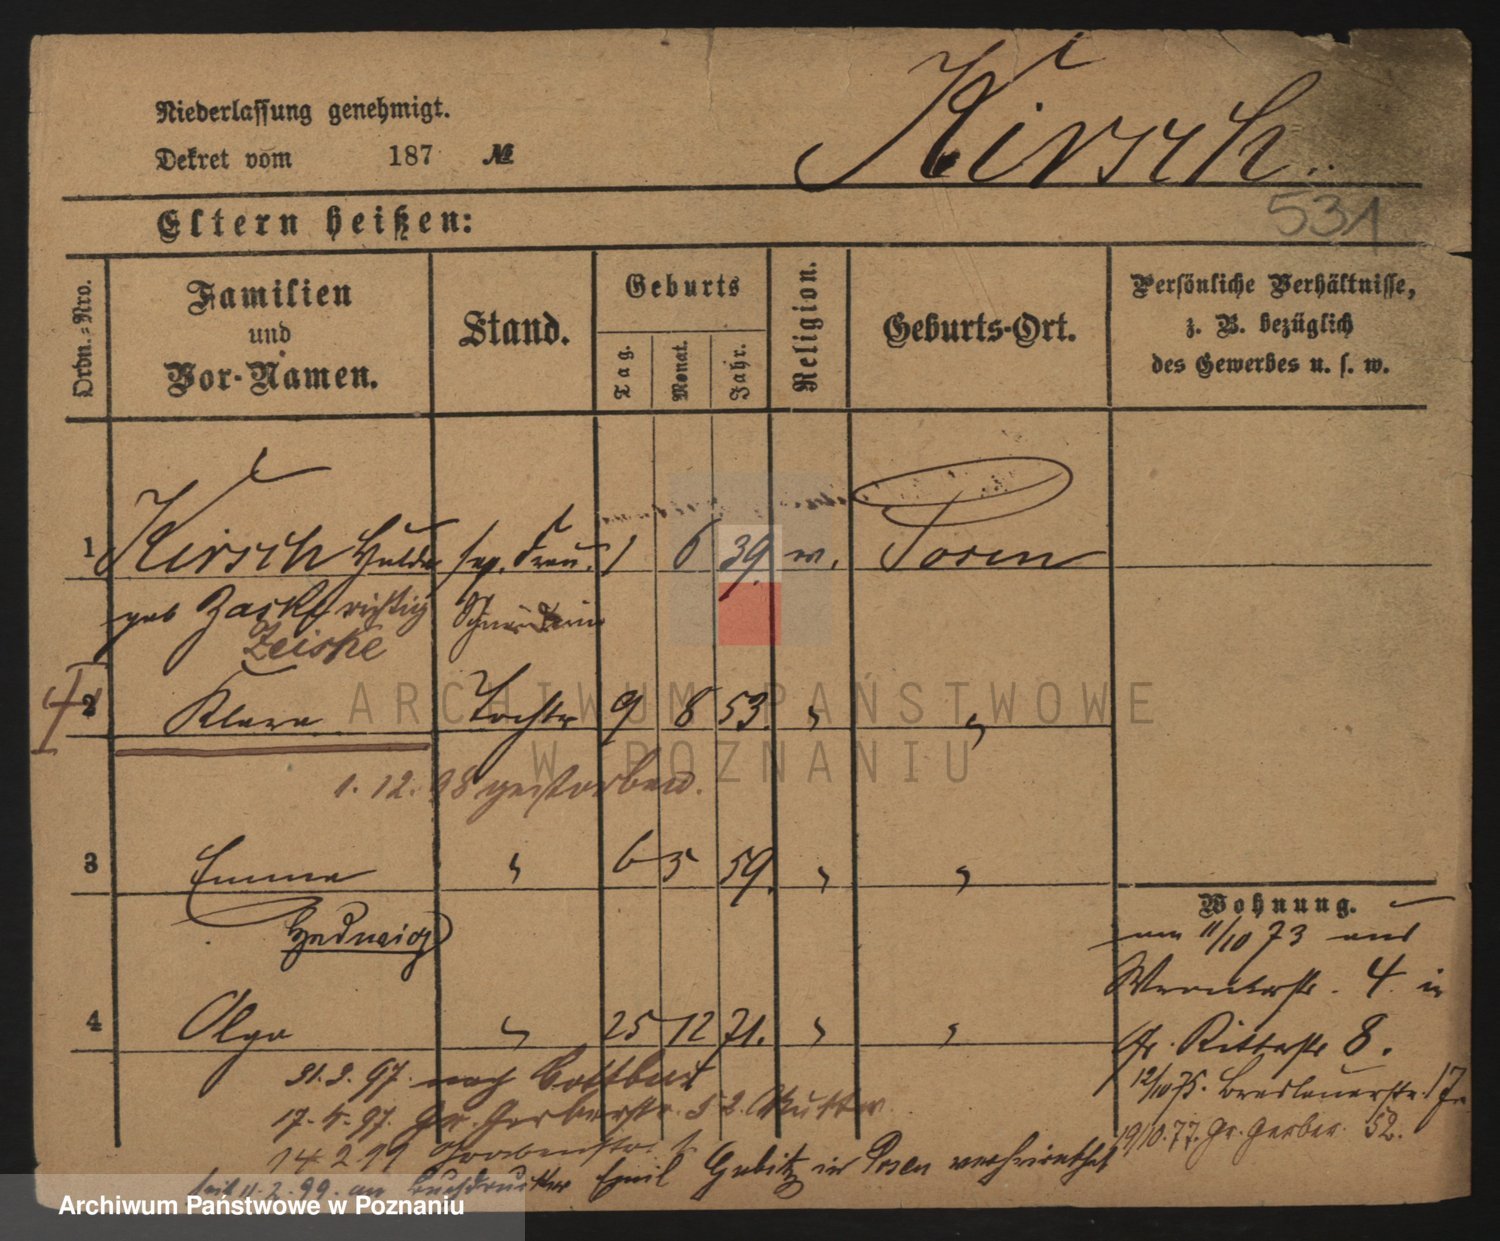 Niederlassung genehmigt.
Dekret vom 187 №
Kirsch
531
Eltern heißen:
Ordn.-Nro.
Familien
und
Vor-Namen.
Stand.
Geburts
Tag.
Monat.
Jahr.
Religion.
Geburts-Ort.
Persönliche Verhältnisse,
z. B. bezüglich
des Gewerbes u. s. w.
1 Kirsch Hulda sep. Frau. 1 6 39. w. Posen
geb Zaske richtig Schneiderin
Zeiske
2 Klara Tochter 9 8 53. " "
1. 12. 98 gestorben.
3 Emma " 6 5 59. " "
Hedwig
4 Olga " 25 12 71. " "
Wohnung.
am 11/10 73 aus
4. in
Gr. Ritterstr 8.
12/10 75. Breslauerstr. 17
19/10. 77. Gr. Gerber. 52.
21. 2. 97. nach Cottbus
17. 4. 97. Gr. Gerberstr. 52. Mutter
14. 2. 99 Grabenstr.
seit 11. 2. 99. an Buchdrucker Emil Gubitz in Posen verheirathet
ARCHIWUM PAŃSTWOWE
W POZNANIU
Archiwum Państwowe w Poznaniu